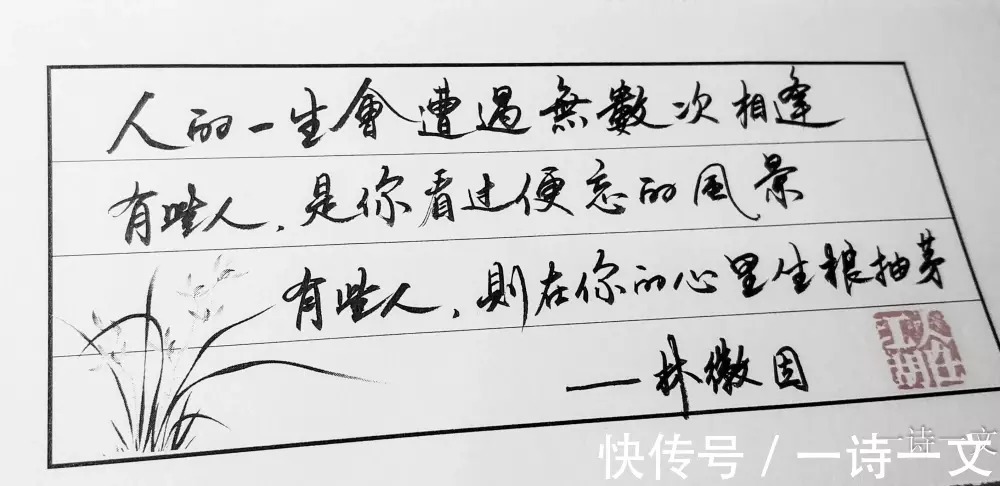 人的一生會遭遇無數次相逢
有些人，是你看过便忘的風景
有些人，則在你的心里生根抽芽
——林徽因
一诗一文
快传号／一诗一文